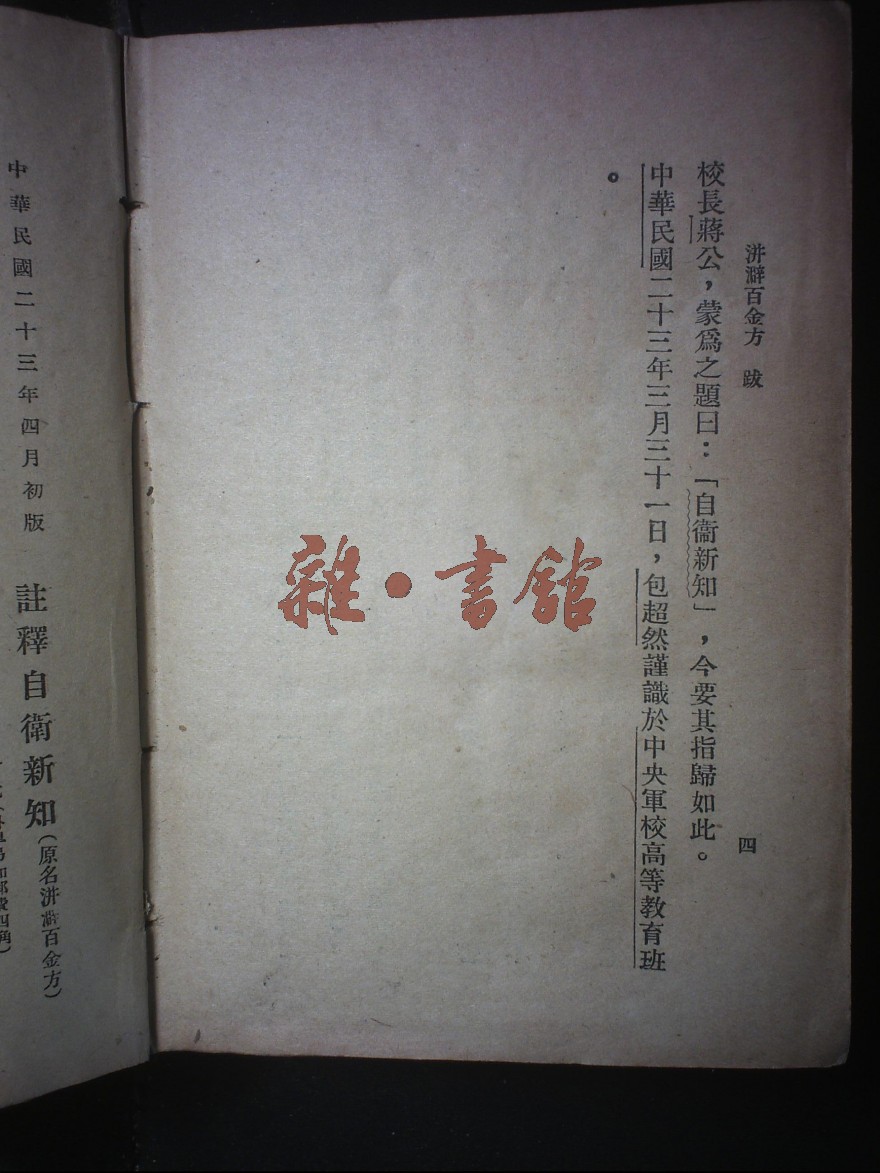 洴澼百金方　跋
四
校長蔣公，蒙爲之題曰：「自衞新知」，今要其指歸如此。
中華民國二十三年三月三十一日，包超然謹識於中央軍校高等教育班
。
雜・書館
註釋自衛新知（原名洴澼百金方）
中華民國二十三年四月初版